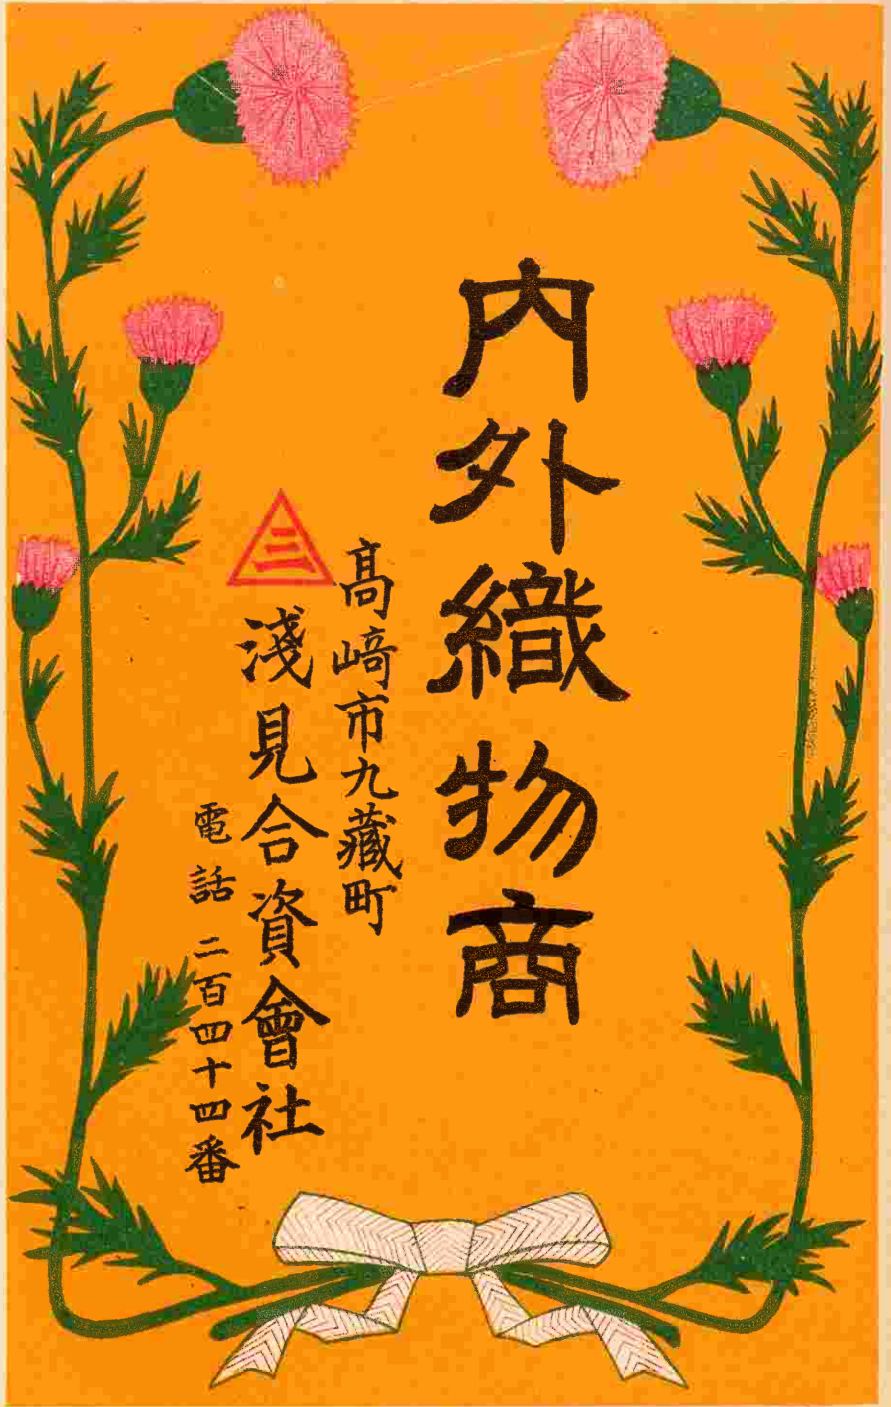 内外織物商
高崎市九藏町
三
淺見合資會社
電話 二百四十四番